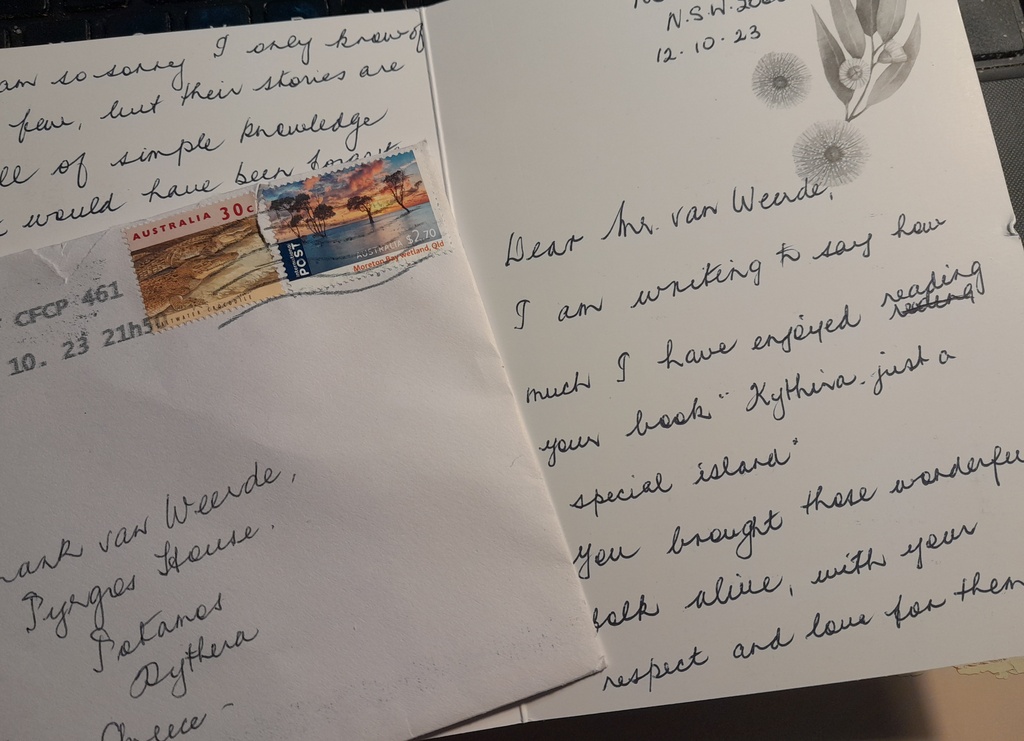 am so sorry I only know of
few, but their stories are
of simple knowledge
would have been
AUSTRALIA 30c
POST
AUSTRALIA $2.70
Moreton Bay wetland, Qld
CFCP 461
10. 23 21h50
van Weerde,
Pyrgos House.
Potamos
Kythera
Greece -
N.S.W.
12.10.23
Dear Mr. van Weerde,
I am writing to say how
much I have enjoyed reading
your book "Kythira. just a
special island"
You brought those wonderful
folk alive, with your
respect and love for them